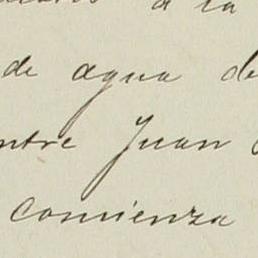 a la
de agua de
ntre Juan
comienza